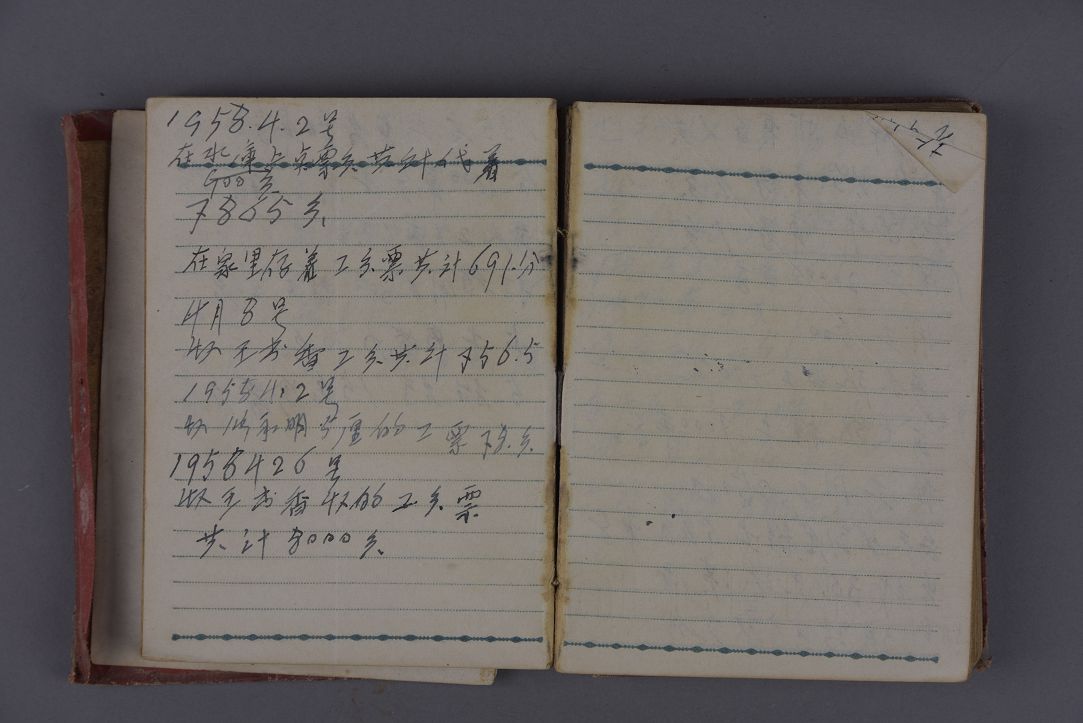 1958.4.2号
在水库上点票分共计代着
900分
7865分
在家里存着工分票共计691分
4月8号
收王书香工分共计756.5
1958.4.2号
收 和明 厘的工票78分
1958 4 26号
收王书香收的工分票
共计8000分